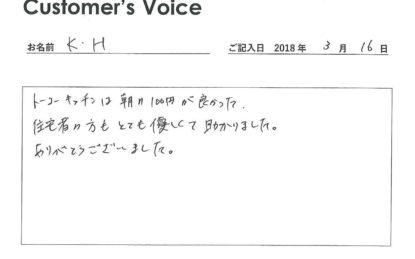 Customer's Voice
お名前 K・H ご記入日 2018 年 3 月 16 日
トーコーキッチンは 朝の100円が良かった.
住宅者の方も とても優しくて 助かりました。
ありがとうございました。